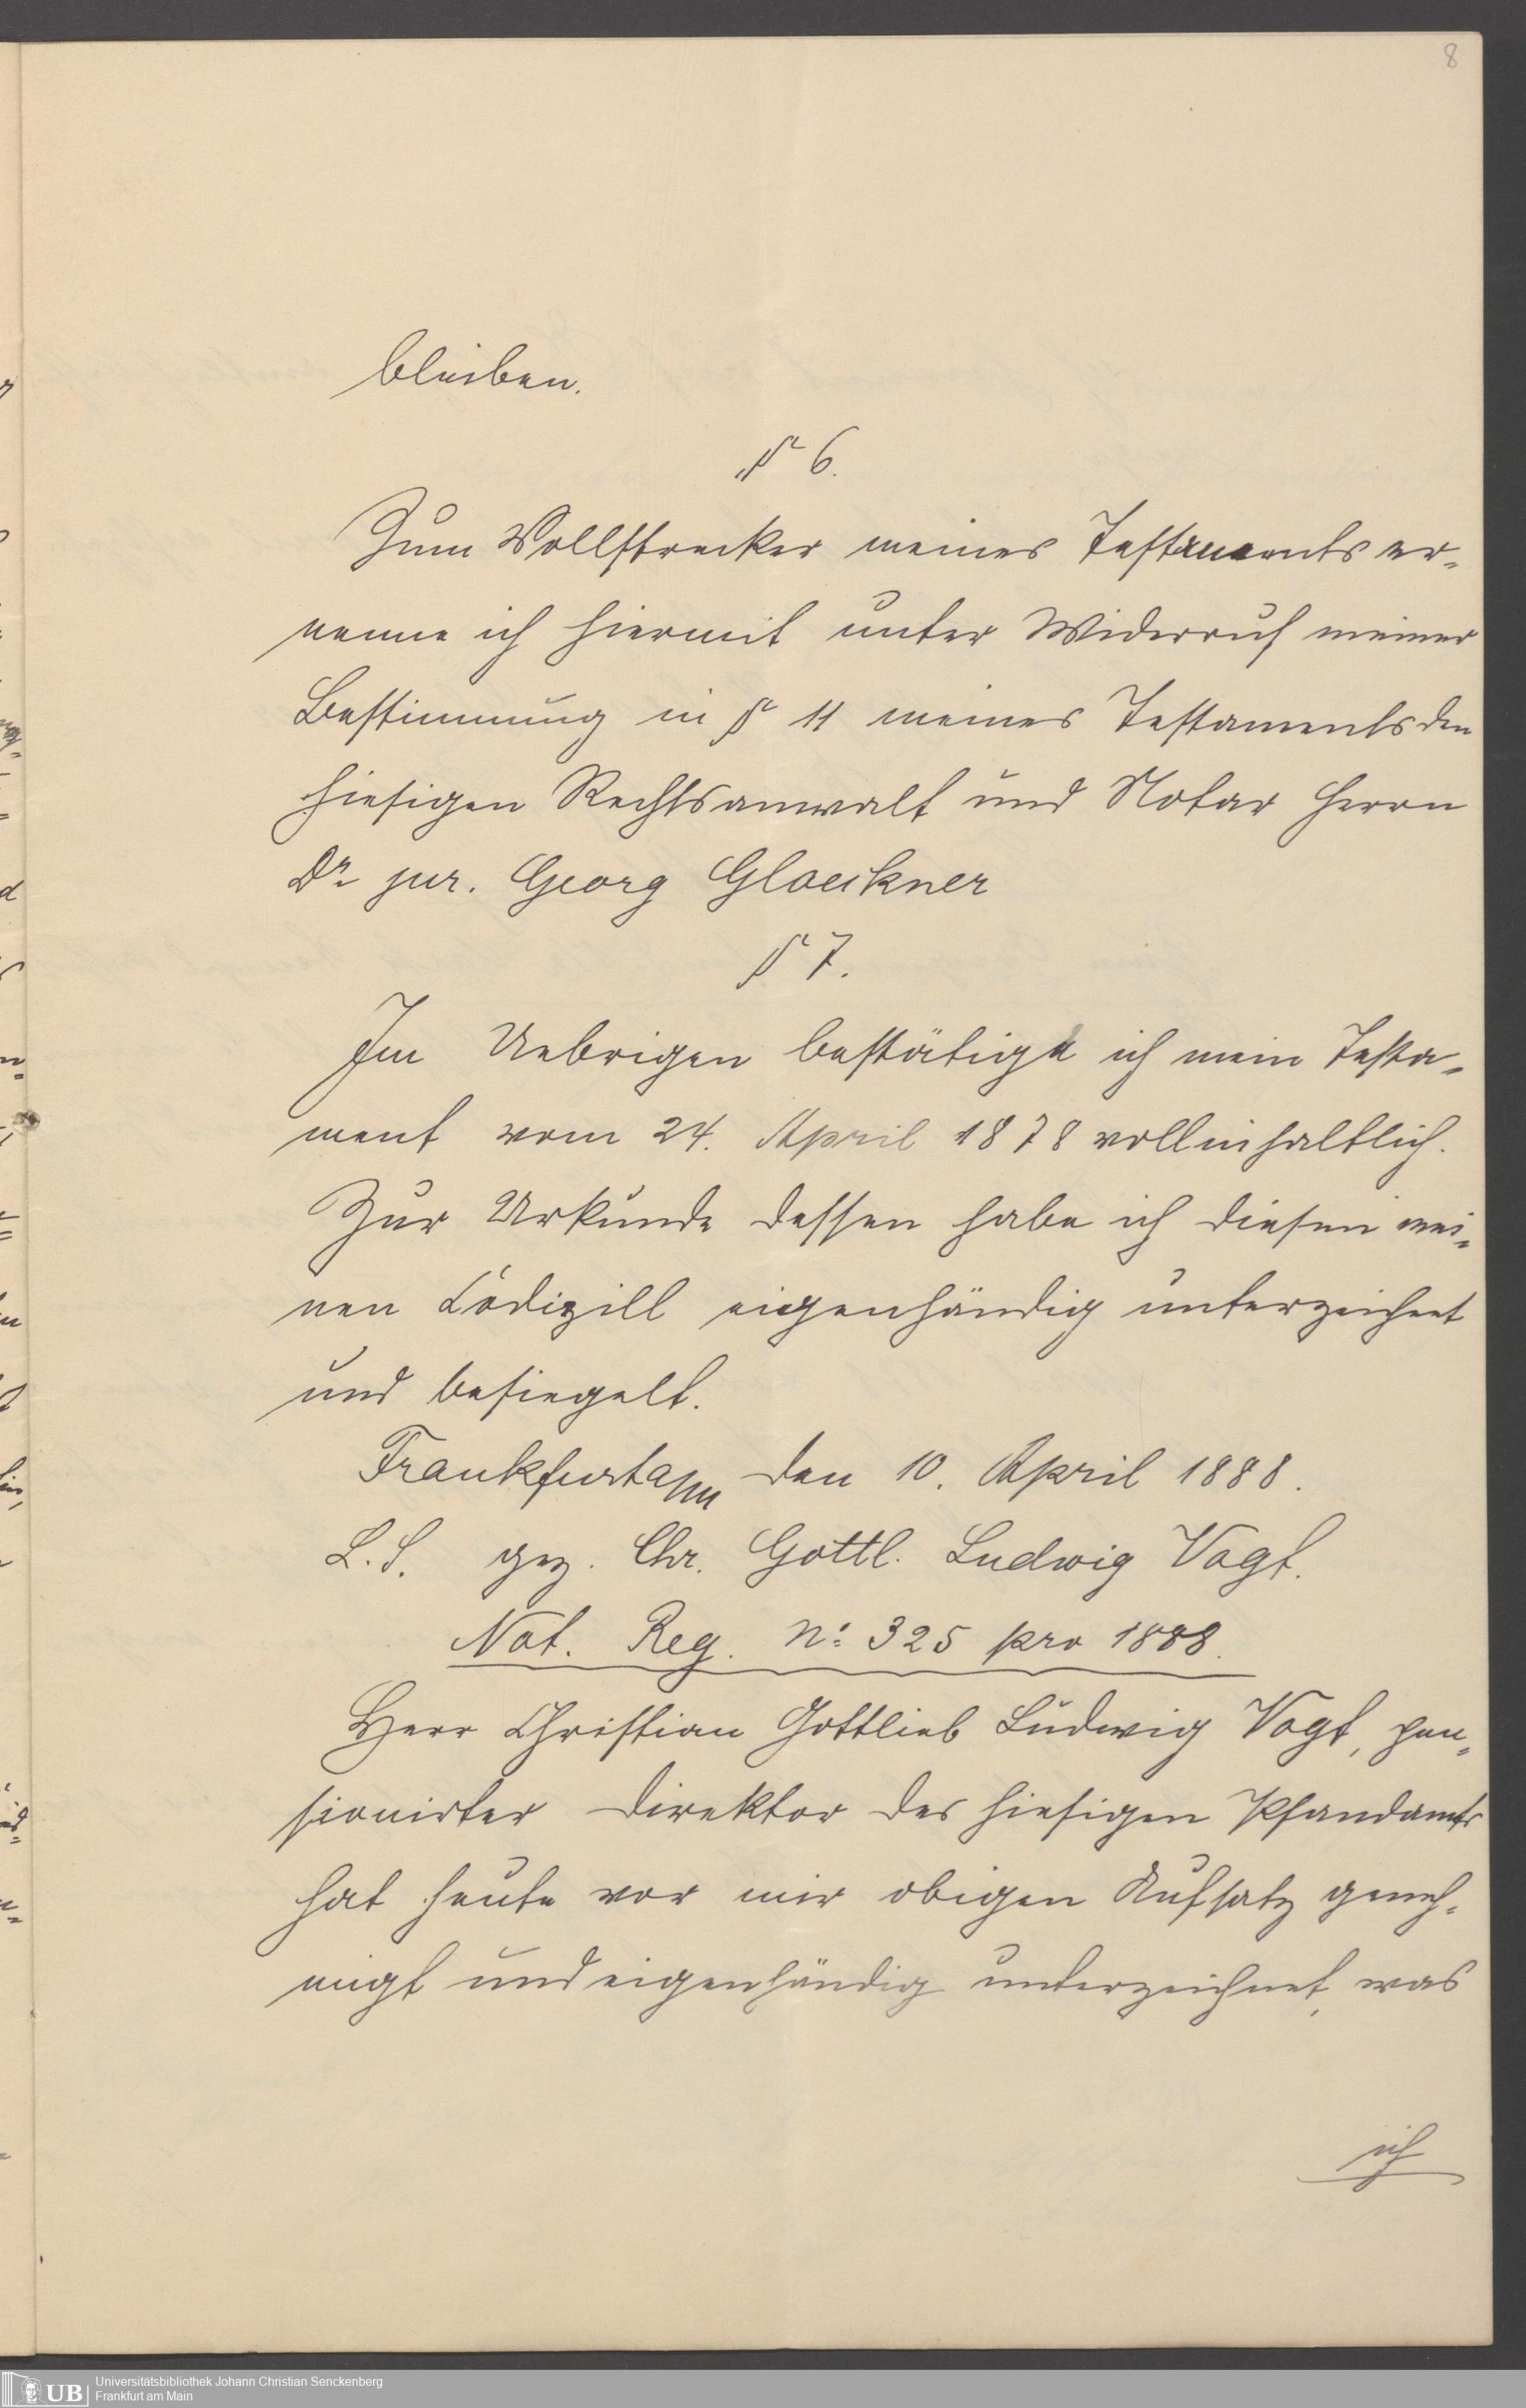 8
bleiben.
§ 6.
Zum Vollstrecker meines Testaments er-
nenne ich hiermit unter Widerruf meiner
Bestimmung in § 11 meines Testaments den
hiesigen Rechtsanwalt und Notar Herrn
Dr jur. Georg Gloeckner
§ 7.
Im Uebrigen bestätige ich mein Testa-
ment vom 24. April 1878 vollinhaltlich.
Zur Urkunde dessen habe ich diesen mei-
nen Codizill eigenhändig unterzeichnet
und besiegelt.
Frankfurt a/m den 10. April 1888.
L. S. gez. Chr. Gottl. Ludwig Vogt.
Not. Reg. No: 325 pro 1888.
Herr Christian Gottlieb Ludwig Vogt, pen-
sionirter Direktor des hiesigen Pfandamts
hat heute vor mir obigen Aufsatz geneh-
migt und eigenhändig unterzeichnet, was
ich
UB Universitätsbibliothek Johann Christian Senckenberg
Frankfurt am Main